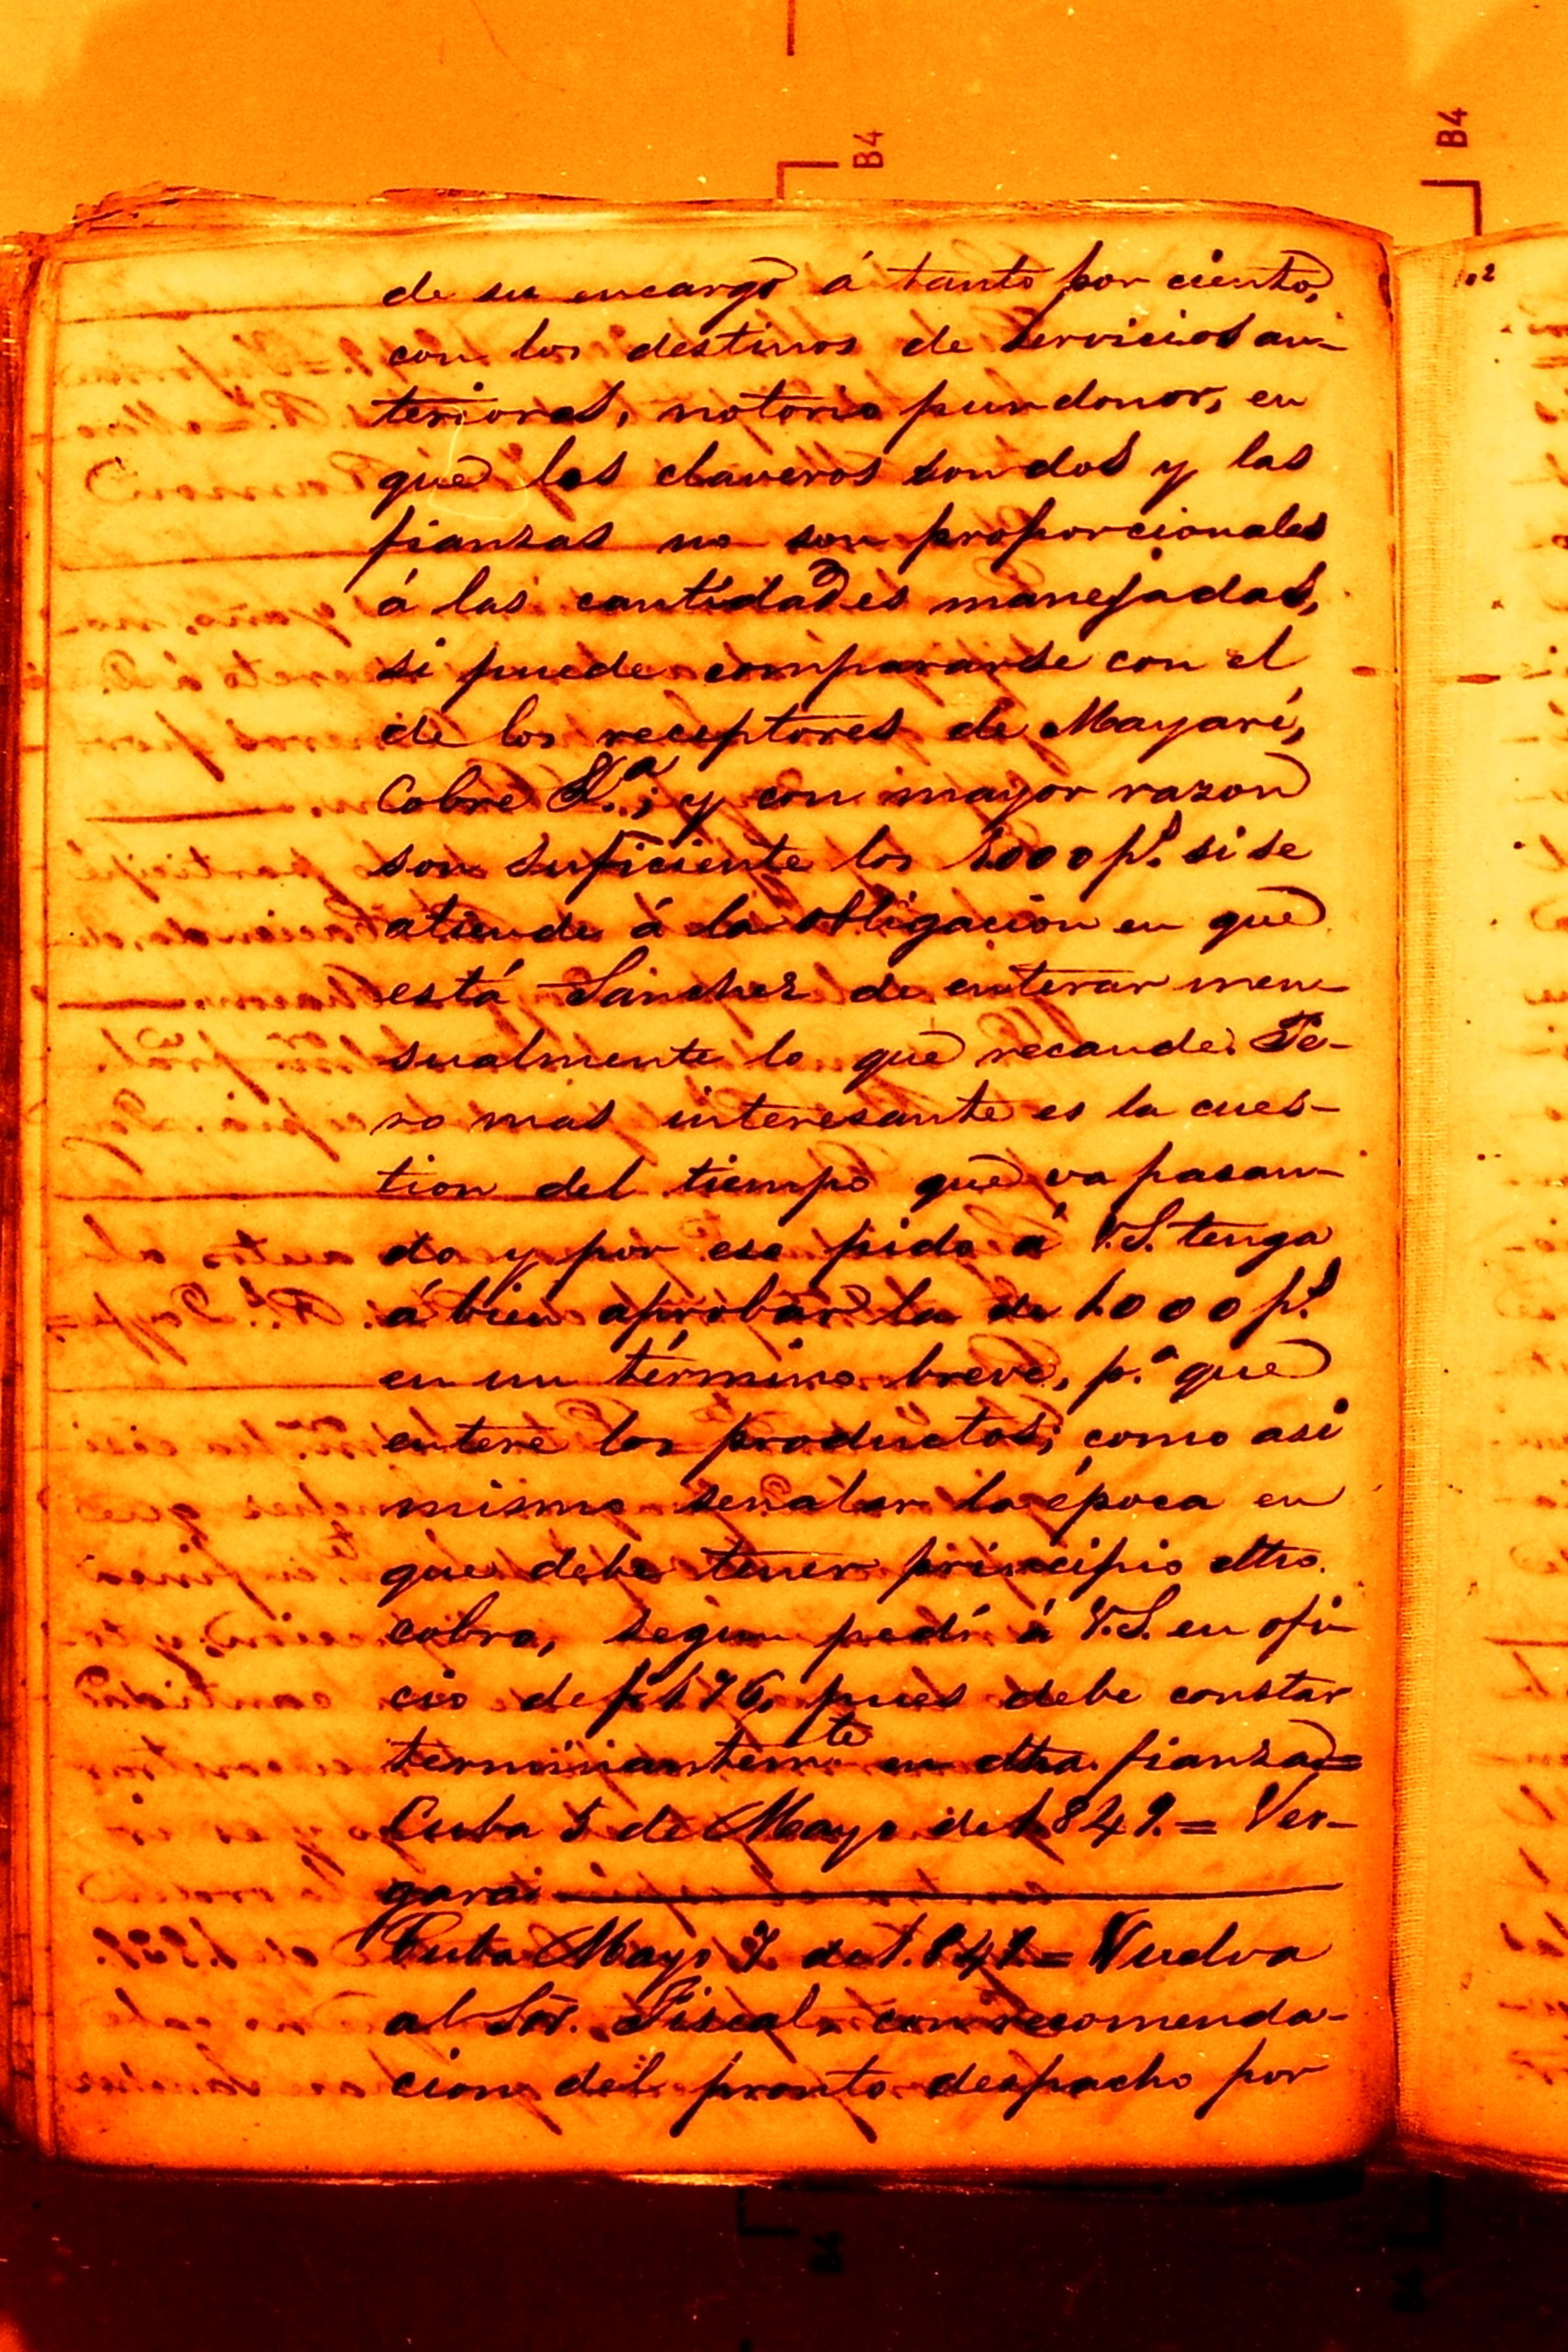 B4
B4
de su encargo á tanto por ciento,
con los destinos de servicios an-
teriores, notorio pundonor, en
que los claveros son dos y las
fianzas no son proporcionales
á las cantidades manejadas,
si puede compararse con el
de los receptores de Mayarí,
Cobre &.ª; y con mayor razon
son suficiente los 1000 p.s si se
atiende á la obligacion en que
está Sanchez de enterar men-
sualmente lo que recaude. Pe-
ro mas interesante es la cues-
tion del tiempo que va pasan-
do y por eso pido á V.S. tenga
á bien aprobar la de 1000 p.s
en un término breve, p.ª que
entere los productos; como asi
mismo señalar la época en
que debe tener principio dho.
cobro, segun pedí á V.S. en ofi-
cio de f 176, pues debe constar
terminantem.te en dha. fianza=
Cuba 5 de Mayo de 1849.= Ver-
gara
Cuba Mayo 7 de 1.849.= Vuelva
al Sor. Fiscal, con recomenda-
cion del pronto despacho por